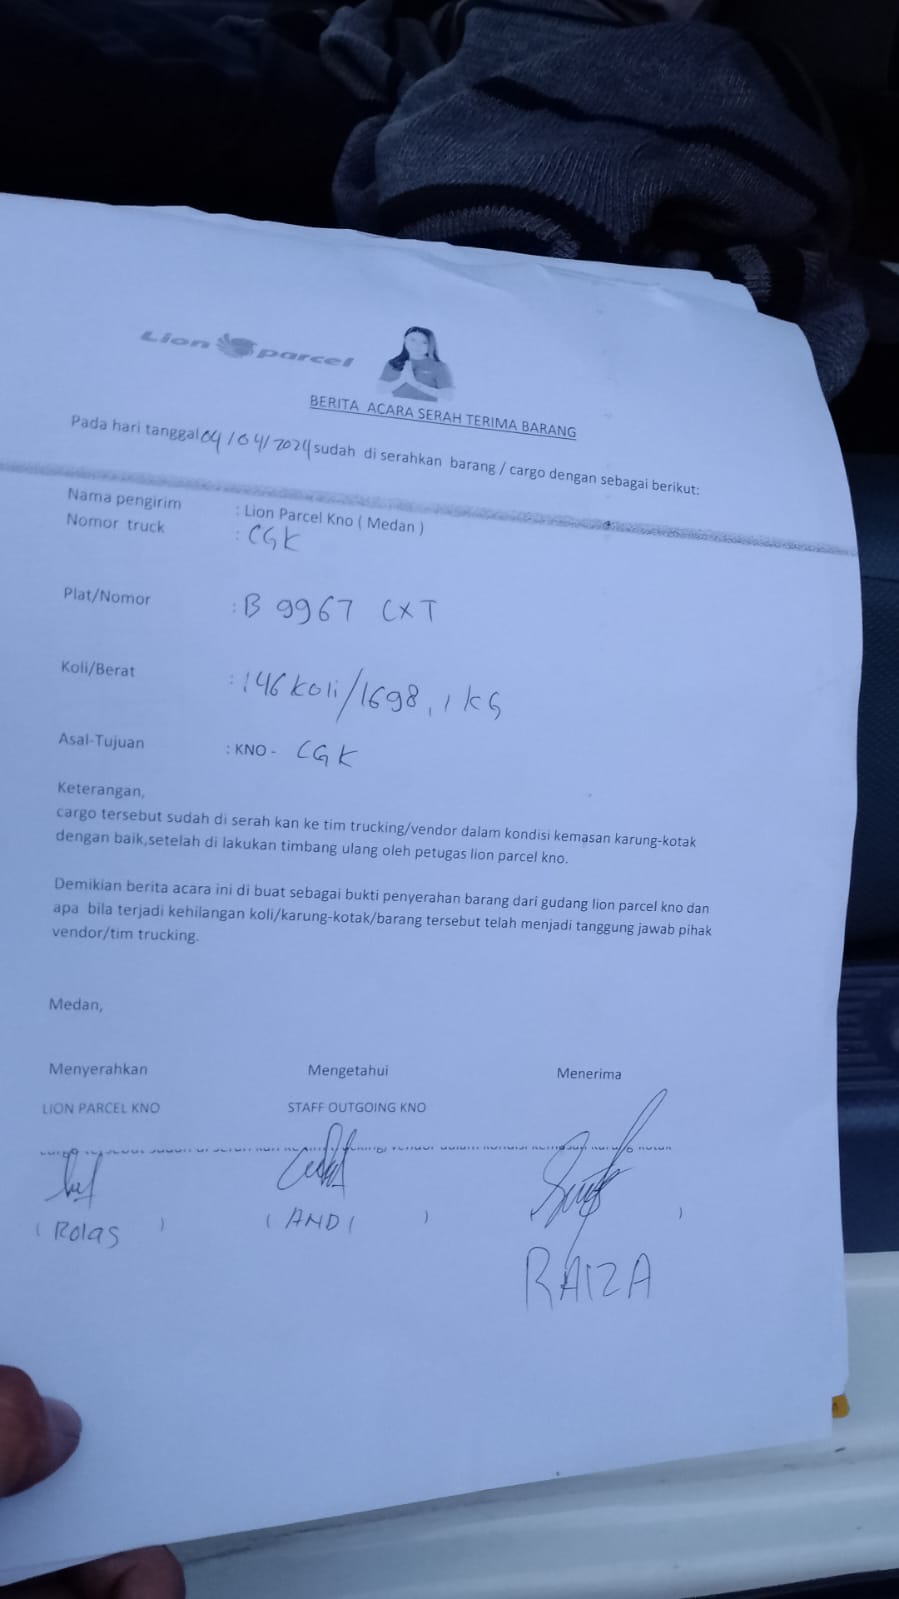 Lion parcel
BERITA ACARA SERAH TERIMA BARANG
Pada hari tanggal 04/04/2024 sudah di serahkan barang / cargo dengan sebagai berikut:
Nama pengirim : Lion Parcel Kno ( Medan )
Nomor truck : CGK
Plat/Nomor : B 9967 CXT
Koli/Berat : 146 koli/1698,1 KG
Asal-Tujuan : KNO - CGK
Keterangan,
cargo tersebut sudah di serah kan ke tim trucking/vendor dalam kondisi kemasan karung-kotak
dengan baik,setelah di lakukan timbang ulang oleh petugas lion parcel kno.
Demikian berita acara ini di buat sebagai bukti penyerahan barang dari gudang lion parcel kno dan
apa bila terjadi kehilangan koli/karung-kotak/barang tersebut telah menjadi tanggung jawab pihak
vendor/tim trucking.
Medan,
Menyerahkan Mengetahui Menerima
LION PARCEL KNO STAFF OUTGOING KNO
( Rolas ) ( ANDI ) )
RAIZA